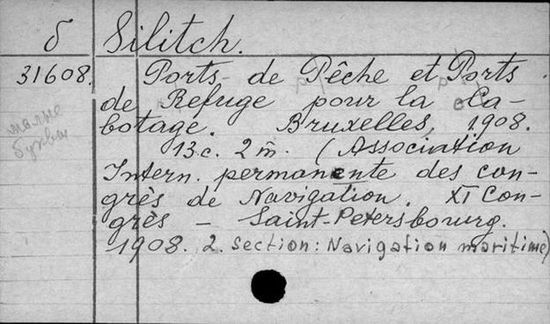 δ Silitch.
31608. Ports de Pêche et Ports
de Refuge pour la Ca-
botage. Bruxelles, 1908.
малые
буквы
13 c. 2 m. (Association
Intern. permanente des con-
grès de Navigation. XI Con-
grès – Saint-Petersbourg.
1908. 2. section: Navigation maritime)